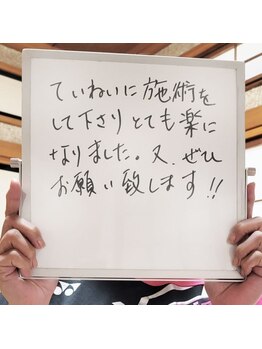 ていねいに施術を
して下さりとても楽に
なりました。又、ぜひ
お願い致します!!